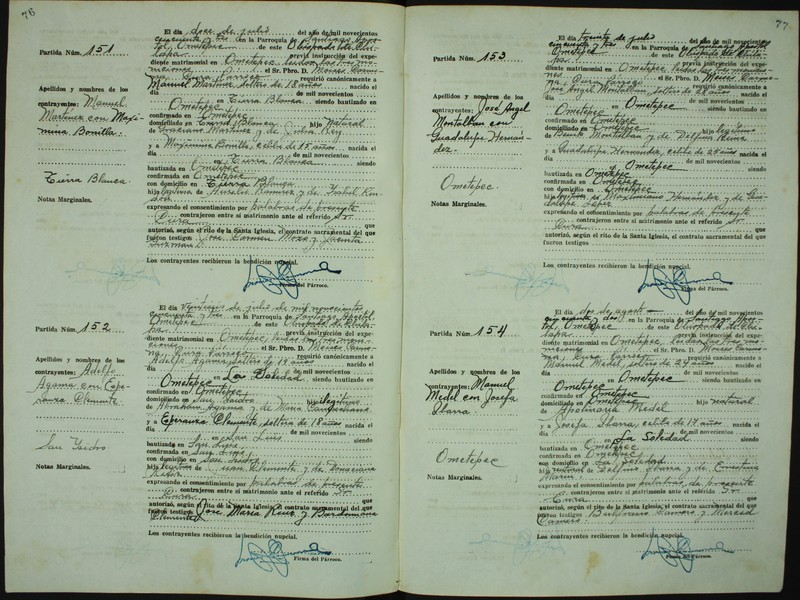 76
Partida Núm. 151
Apellidos y nombres de los
contrayentes: Manuel
Martinez con Maxi-
mina Bonilla.
Tierra Blanca
Notas Marginales.
El día doce de julio del año de mil novecientos
cincuenta y tres en la Parroquia de Santiago Apos-
tol, Ometepec de este Obispado de Chi-
lapa previa instrucción del expe-
diente matrimonial en Ometepec, leidas las tres mo-
niciones el Sr. Pbro. D. Moises
Cura Parroco requirió canónicamente a
Manuel Martinez, soltero de 18 años nacido el
día de mil novecientos
en Tierra Blanca siendo bautizado en
Ometepec
confirmado en Ometepec
domiciliado en Tierra Blanca hijo natural
de Martinez y de
y a Maximina Bonilla, celibe de 15 años nacida el
día de mil novecientos
en Tierra Blanca siendo
bautizada en Ometepec
confirmada en Ometepec
con domicilio en Tierra Blanca
hija Ramirez y de Isabel
expresando el consentimiento por palabras de presente
contrajeron entre sí matrimonio ante el referido Sr.
Cura que
autorizó, según el rito de la Santa Iglesia, el contrato sacramental del que
fueron testigos Jose Carmen Meza y Jacinta
Guzman
Los contrayentes recibieron la bendición nupcial.
Firma del Párroco.
Partida Núm. 152
Apellidos y nombres de los
contrayentes: Adolfo
Agama con Espe-
ranza Clemente.
San Isidro
Notas Marginales.
El día de julio de mil novecientos
cincuenta y tres en la Parroquia de Santiago Apostol
Ometepec de este Obispado de Chila-
pa previa instrucción del expe-
diente matrimonial en Ometepec, leidas las tres moni-
ciones el Sr. Pbro. D. Moises
Cura Parroco requirió canónicamente a
Adolfo Agama, soltero de 19 años nacido el
día de mil novecientos
en La Soledad siendo bautizado en
Ometepec
confirmado en Ometepec
domiciliado en San Isidro hijo legitimo
de Abraham Agama y de Maria
y a Esperanza Clemente, soltera de 18 años nacida el
día de mil novecientos
en San Luis siendo
bautizada en San Luis
confirmada en San Luis
con domicilio en San Isidro
hija Clemente y de
expresando el consentimiento por palabras de presente
contrajeron entre sí matrimonio ante el referido Sr.
Cura que
autorizó, según el rito de la Santa Iglesia, el contrato sacramental del que
fueron testigos Jose Maria Ruiz y
Clemente
Los contrayentes recibieron la bendición nupcial.
Firma del Párroco.
77
Partida Núm. 153
Apellidos y nombres de los
contrayentes: José Angel
Montalban con
Guadalupe Hernán-
dez.
Ometepec
Notas Marginales.
El día treinta de julio del año de mil novecientos
cincuenta y tres en la Parroquia de Santiago Apostol
Ometepec de este Obispado de Chila-
pa previa instrucción del expe-
diente matrimonial en Ometepec, leidas las tres monicio-
nes el Sr. Pbro. D. Moises
Cura Parroco requirió canónicamente a
Jose Angel Montalban, soltero de 28 años nacido el
día de mil novecientos
en Ometepec siendo bautizado en
Ometepec
confirmado en Ometepec
domiciliado en Ometepec hijo legitimo
de Montalban y de Delfina
y a Guadalupe Hernández, celibe de 29 años nacida el
día de mil novecientos
en Ometepec siendo
bautizada en Ometepec
confirmada en Ometepec
con domicilio en Ometepec
hija legitima de Maximiano Hernández y de Gua-
dalupe Lopez
expresando el consentimiento por palabras de presente
contrajeron entre sí matrimonio ante el referido Sr.
Cura que
autorizó, según el rito de la Santa Iglesia, el contrato sacramental del que
fueron testigos
Los contrayentes recibieron la bendición nupcial.
Firma del Párroco.
Partida Núm. 154
Apellidos y nombres de los
contrayentes: Manuel
Medel con Josefa
Ibarra.
Ometepec
Notas Marginales.
El día dos de agosto del año de mil novecientos
cincuenta y dos en la Parroquia de Santiago Apos-
tol, Ometepec de este Obispado de Chi-
lapa previa instrucción del expe-
diente matrimonial en Ometepec, leidas las tres mo-
niciones el Sr. Pbro. D. Moises
Cura Parroco requirió canónicamente a
Manuel Medel, soltero de 24 años nacido el
día de mil novecientos
en Ometepec siendo bautizado en
Ometepec
confirmado en Ometepec
domiciliado en Ometepec hijo natural
de Apolinaria Medel
y a Josefa Ibarra, celibe de 17 años nacida el
día de mil novecientos
en La Soledad siendo
bautizada en Ometepec
confirmada en Ometepec
con domicilio en La Soledad
hija Ibarra y de
expresando el consentimiento por palabras de presente
contrajeron entre sí matrimonio ante el referido Sr.
Cura que
autorizó, según el rito de la Santa Iglesia, el contrato sacramental del que
fueron testigos
Los contrayentes recibieron la bendición nupcial.
Firma del Párroco.